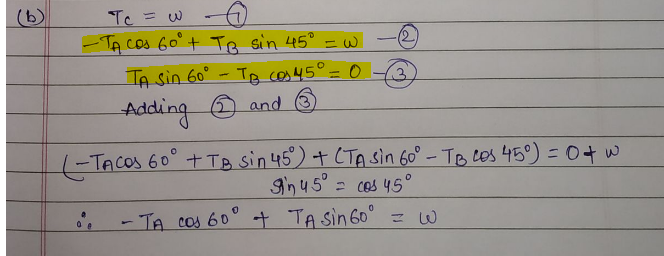 (b) Tc = w —①
-TA cos 60° + TB sin 45° = w —②
TA sin 60° - TB cos 45° = 0 —③
Adding ② and ③
(-TA cos 60° + TB sin 45°) + (TA sin 60° - TB cos 45°) = 0 + w
sin 45° = cos 45°
∴ - TA cos 60° + TA sin 60° = w